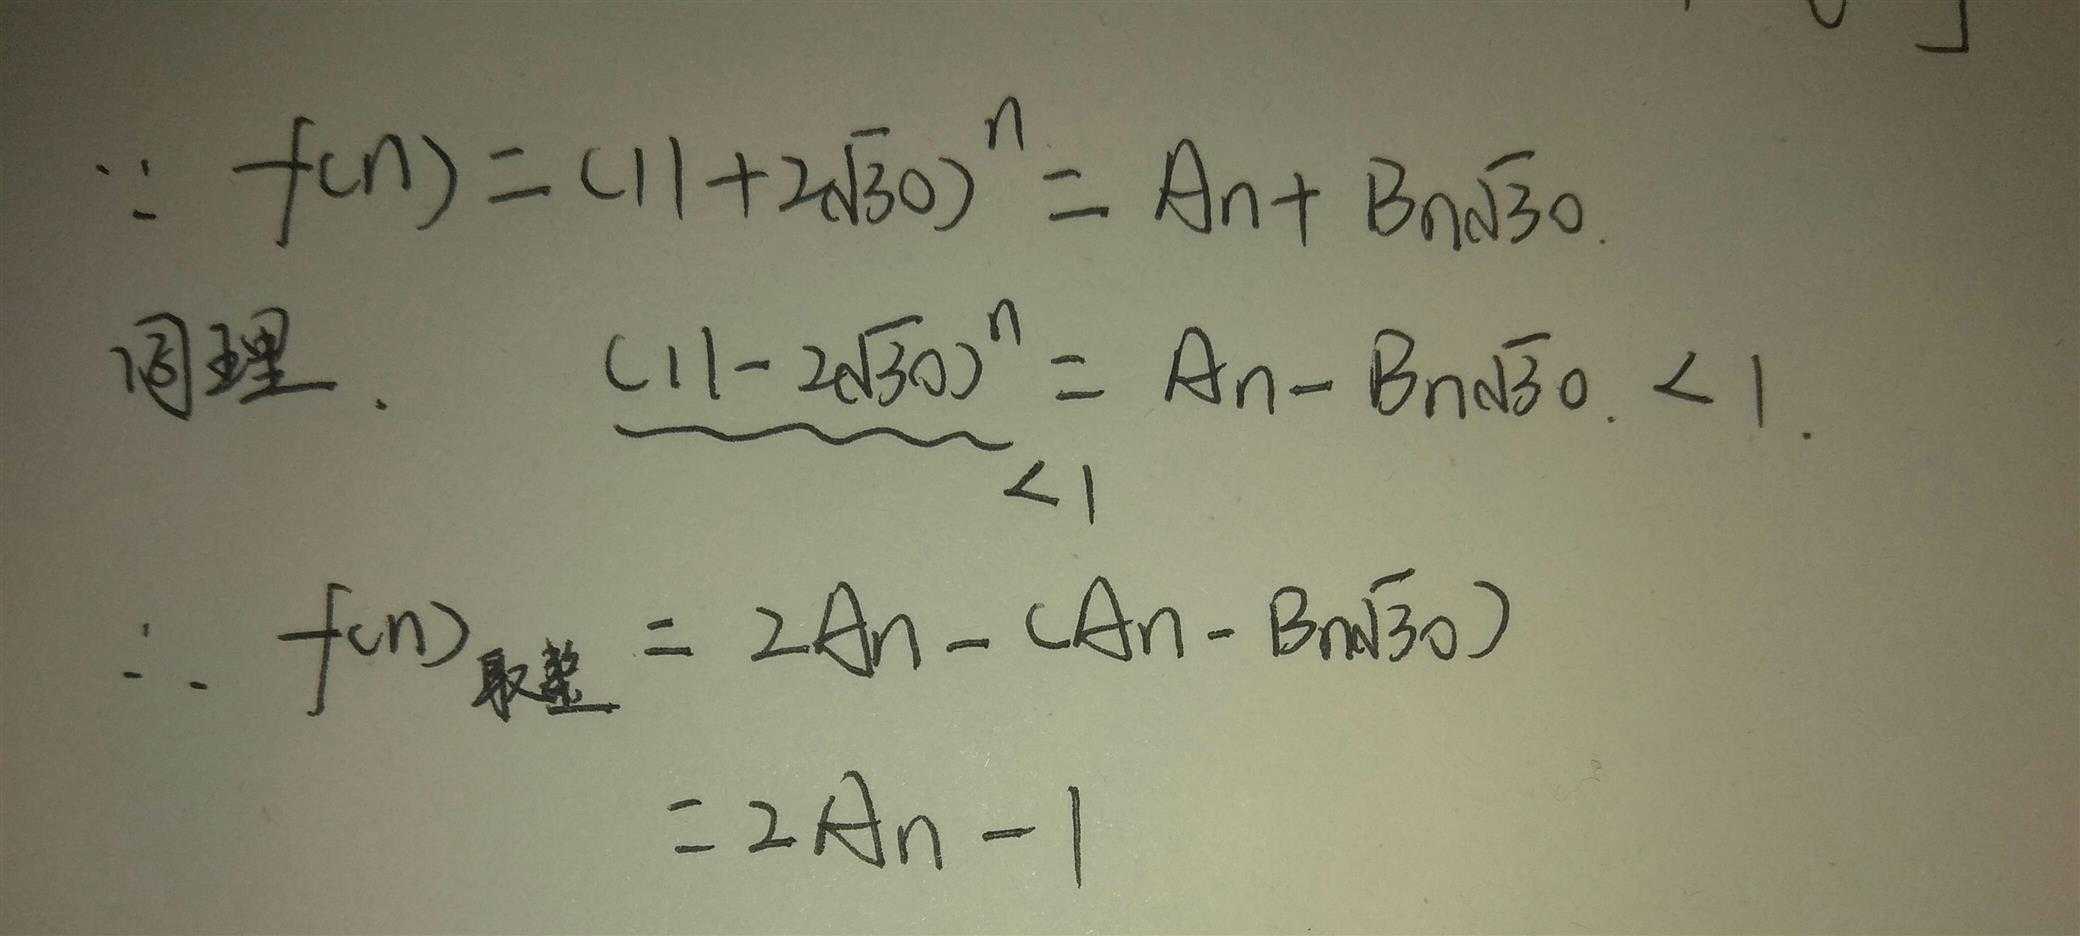 ∵ f(n) = (11+2√30)ⁿ = An + Bn√30.
同理. (11-2√30)ⁿ = An - Bn√30. < 1.
< 1
∴ f(n)取整 = 2An - (An - Bn√30)
= 2An - 1